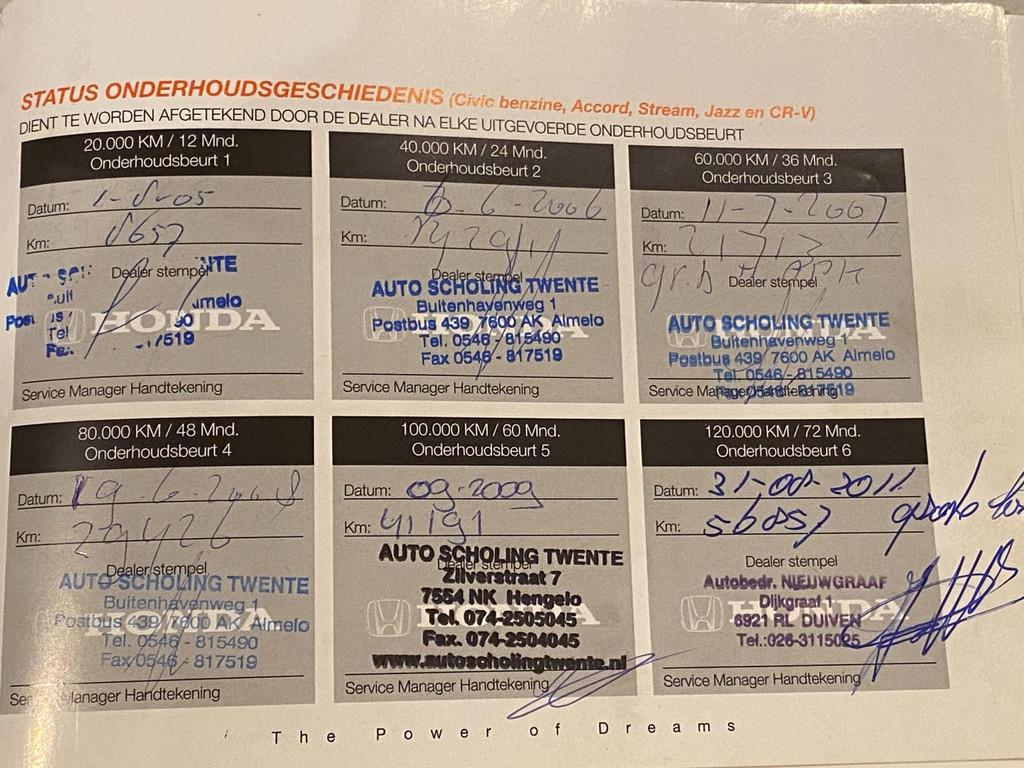 STATUS ONDERHOUDSGESCHIEDENIS (Civic benzine, Accord, Stream, Jazz en CR-V)
DIENT TE WORDEN AFGETEKEND DOOR DE DEALER NA ELKE UITGEVOERDE ONDERHOUDSBEURT
20.000 KM / 12 Mnd.
Onderhoudsbeurt 1
Datum: 1-8-05
Km: 8657
Dealer stempel
HONDA
Service Manager Handtekening
40.000 KM / 24 Mnd.
Onderhoudsbeurt 2
Datum: 6-6-2006
Km:
Dealer stempel
AUTO SCHOLING TWENTE
Buitenhavenweg 1
Postbus 439 7600 AK Almelo
Tel. 0546 - 815490
Fax 0546 - 817519
Service Manager Handtekening
60.000 KM / 36 Mnd.
Onderhoudsbeurt 3
Datum: 11-7-2007
Km: 21713
Dealer stempel
AUTO SCHOLING TWENTE
Buitenhavenweg 1
Postbus 439 7600 AK Almelo
Tel. 0546 - 815490
Fax 0546 - 817519
Service Manager Handtekening
80.000 KM / 48 Mnd.
Onderhoudsbeurt 4
Datum: 19-6-2008
Km: 29426
Dealer stempel
AUTO SCHOLING TWENTE
Buitenhavenweg 1
Postbus 439 7600 AK Almelo
Tel. 0546 - 815490
Fax 0546 - 817519
Service Manager Handtekening
100.000 KM / 60 Mnd.
Onderhoudsbeurt 5
Datum: 09-2009
Km: 41191
Dealer stempel
AUTO SCHOLING TWENTE
Zilverstraat 7
7554 NK Hengelo
Tel. 074-2505045
Fax. 074-2504045
www.autoscholingtwente.nl
Service Manager Handtekening
120.000 KM / 72 Mnd.
Onderhoudsbeurt 6
Datum: 31-08-2011
Km: 56857
Dealer stempel
Autobedr. NIEUWGRAAF
Dijkgraaf 1
6921 RL DUIVEN
Tel.:026-3115025
HONDA
Service Manager Handtekening
The Power of Dreams